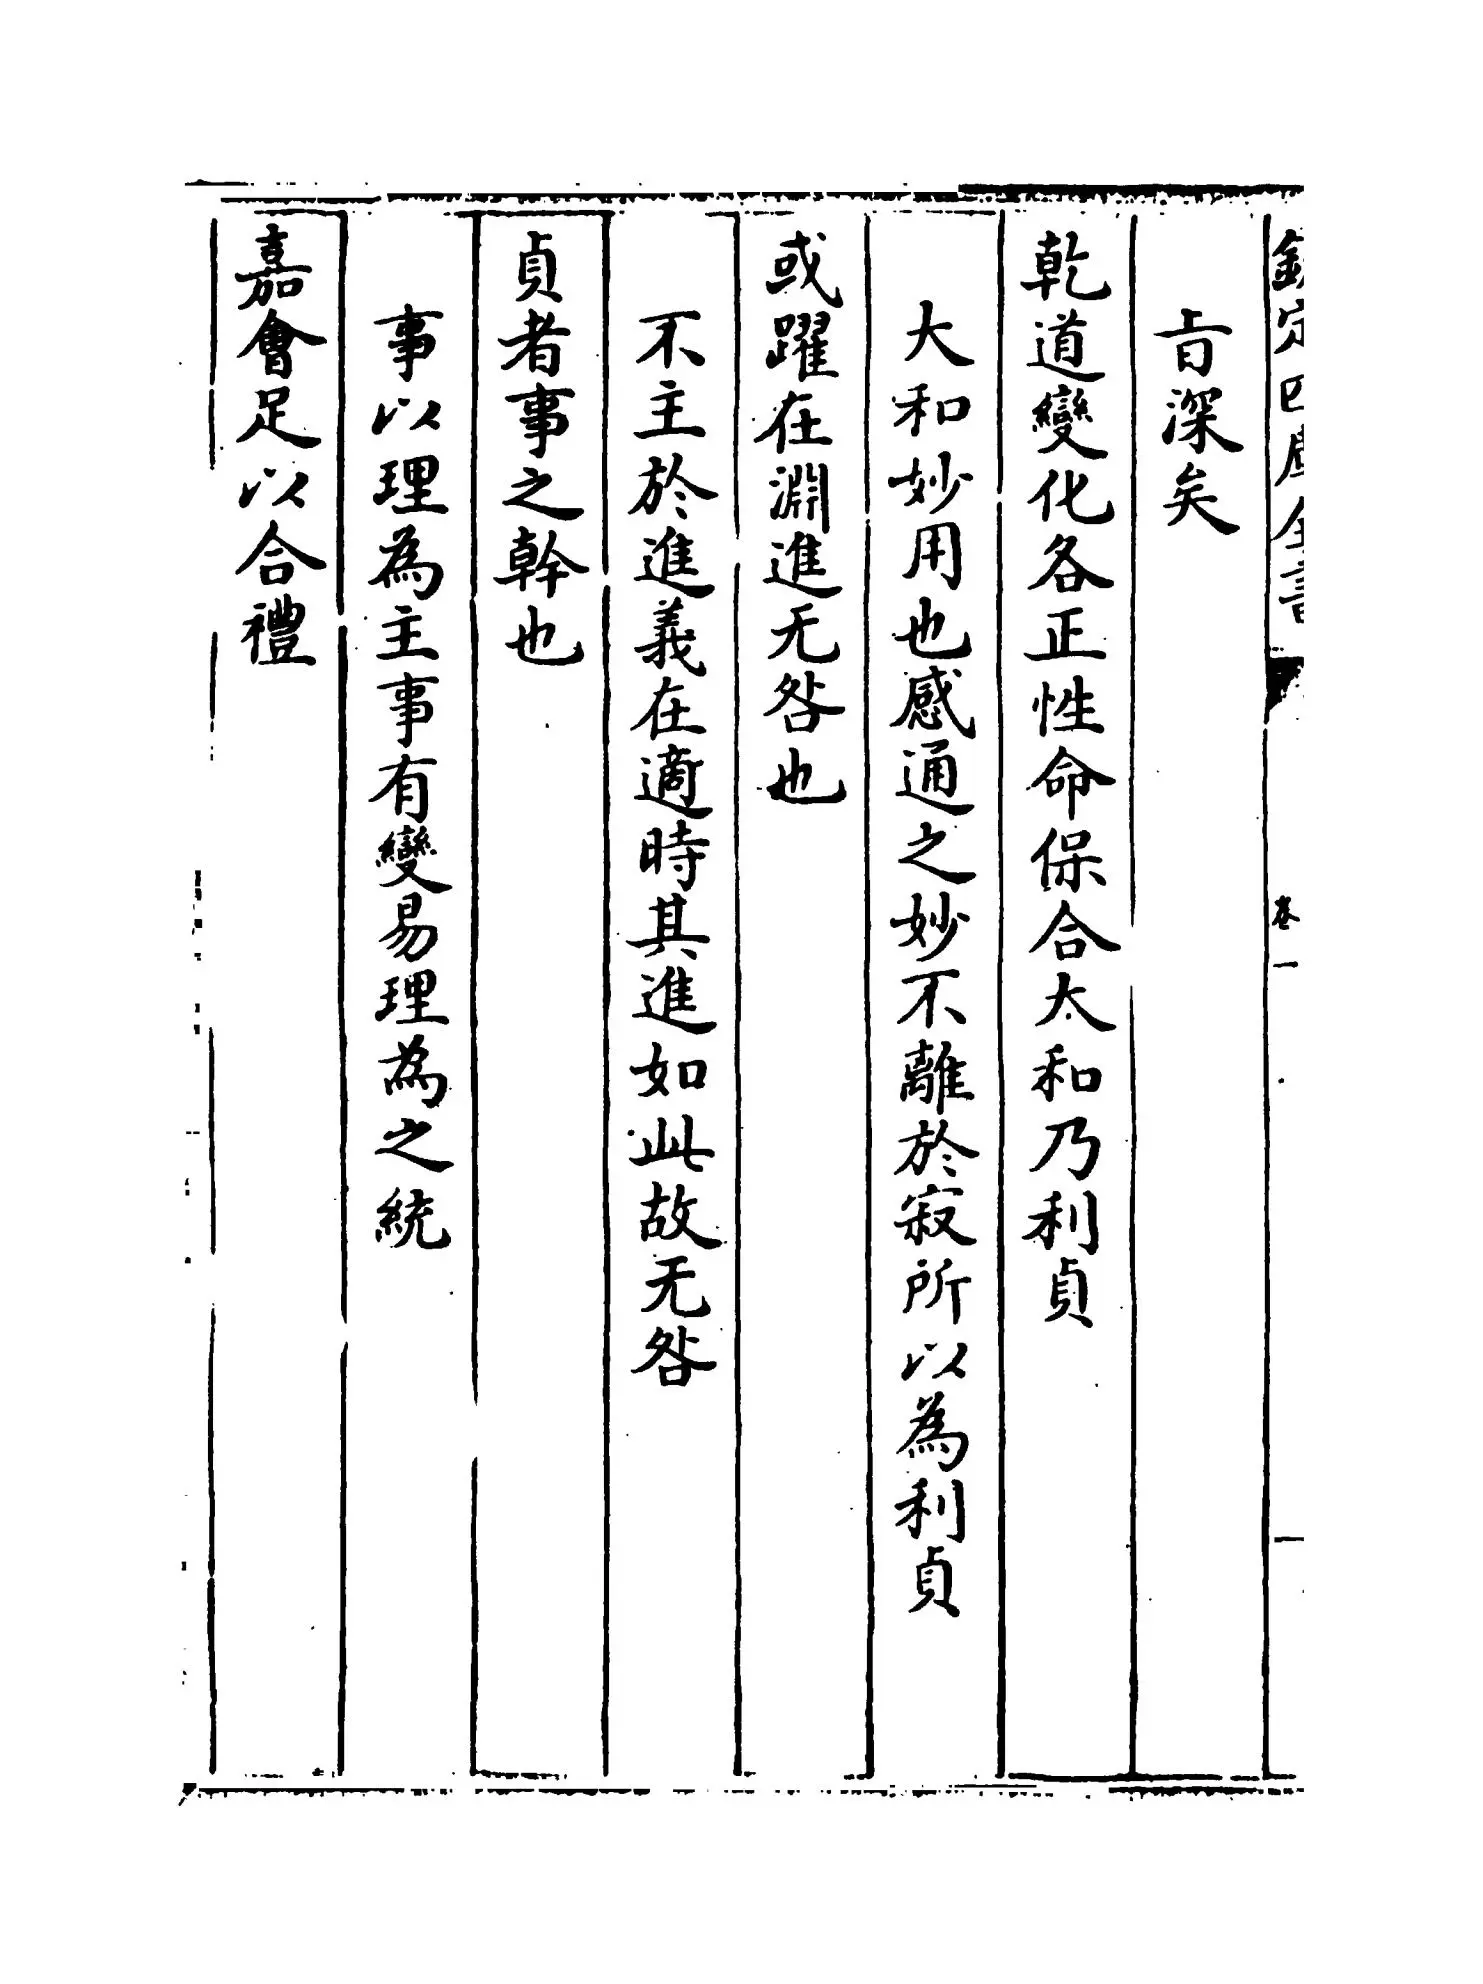 欽定四庫全書
卷一
一
旨深矣
乾道變化各正性命保合太和乃利貞
大和妙用也感通之妙不離於寂所以為利貞
或躍在淵進无咎也
不主於進義在適時其進如此故无咎
貞者事之幹也
事以理為主事有變易理為之統
嘉會足以合禮